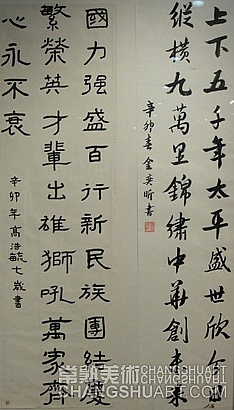 上下五千年太平盛世欣今
縱橫九萬里錦繡中華創未來
辛卯春金奕昕書
國力强盛百行新民族團結慶
繁榮英才輩出雄獅吼萬家齊
心永不衰
辛卯年高浩毓七歲書
常熟美術SHUANG
CHANGSHUART.COM